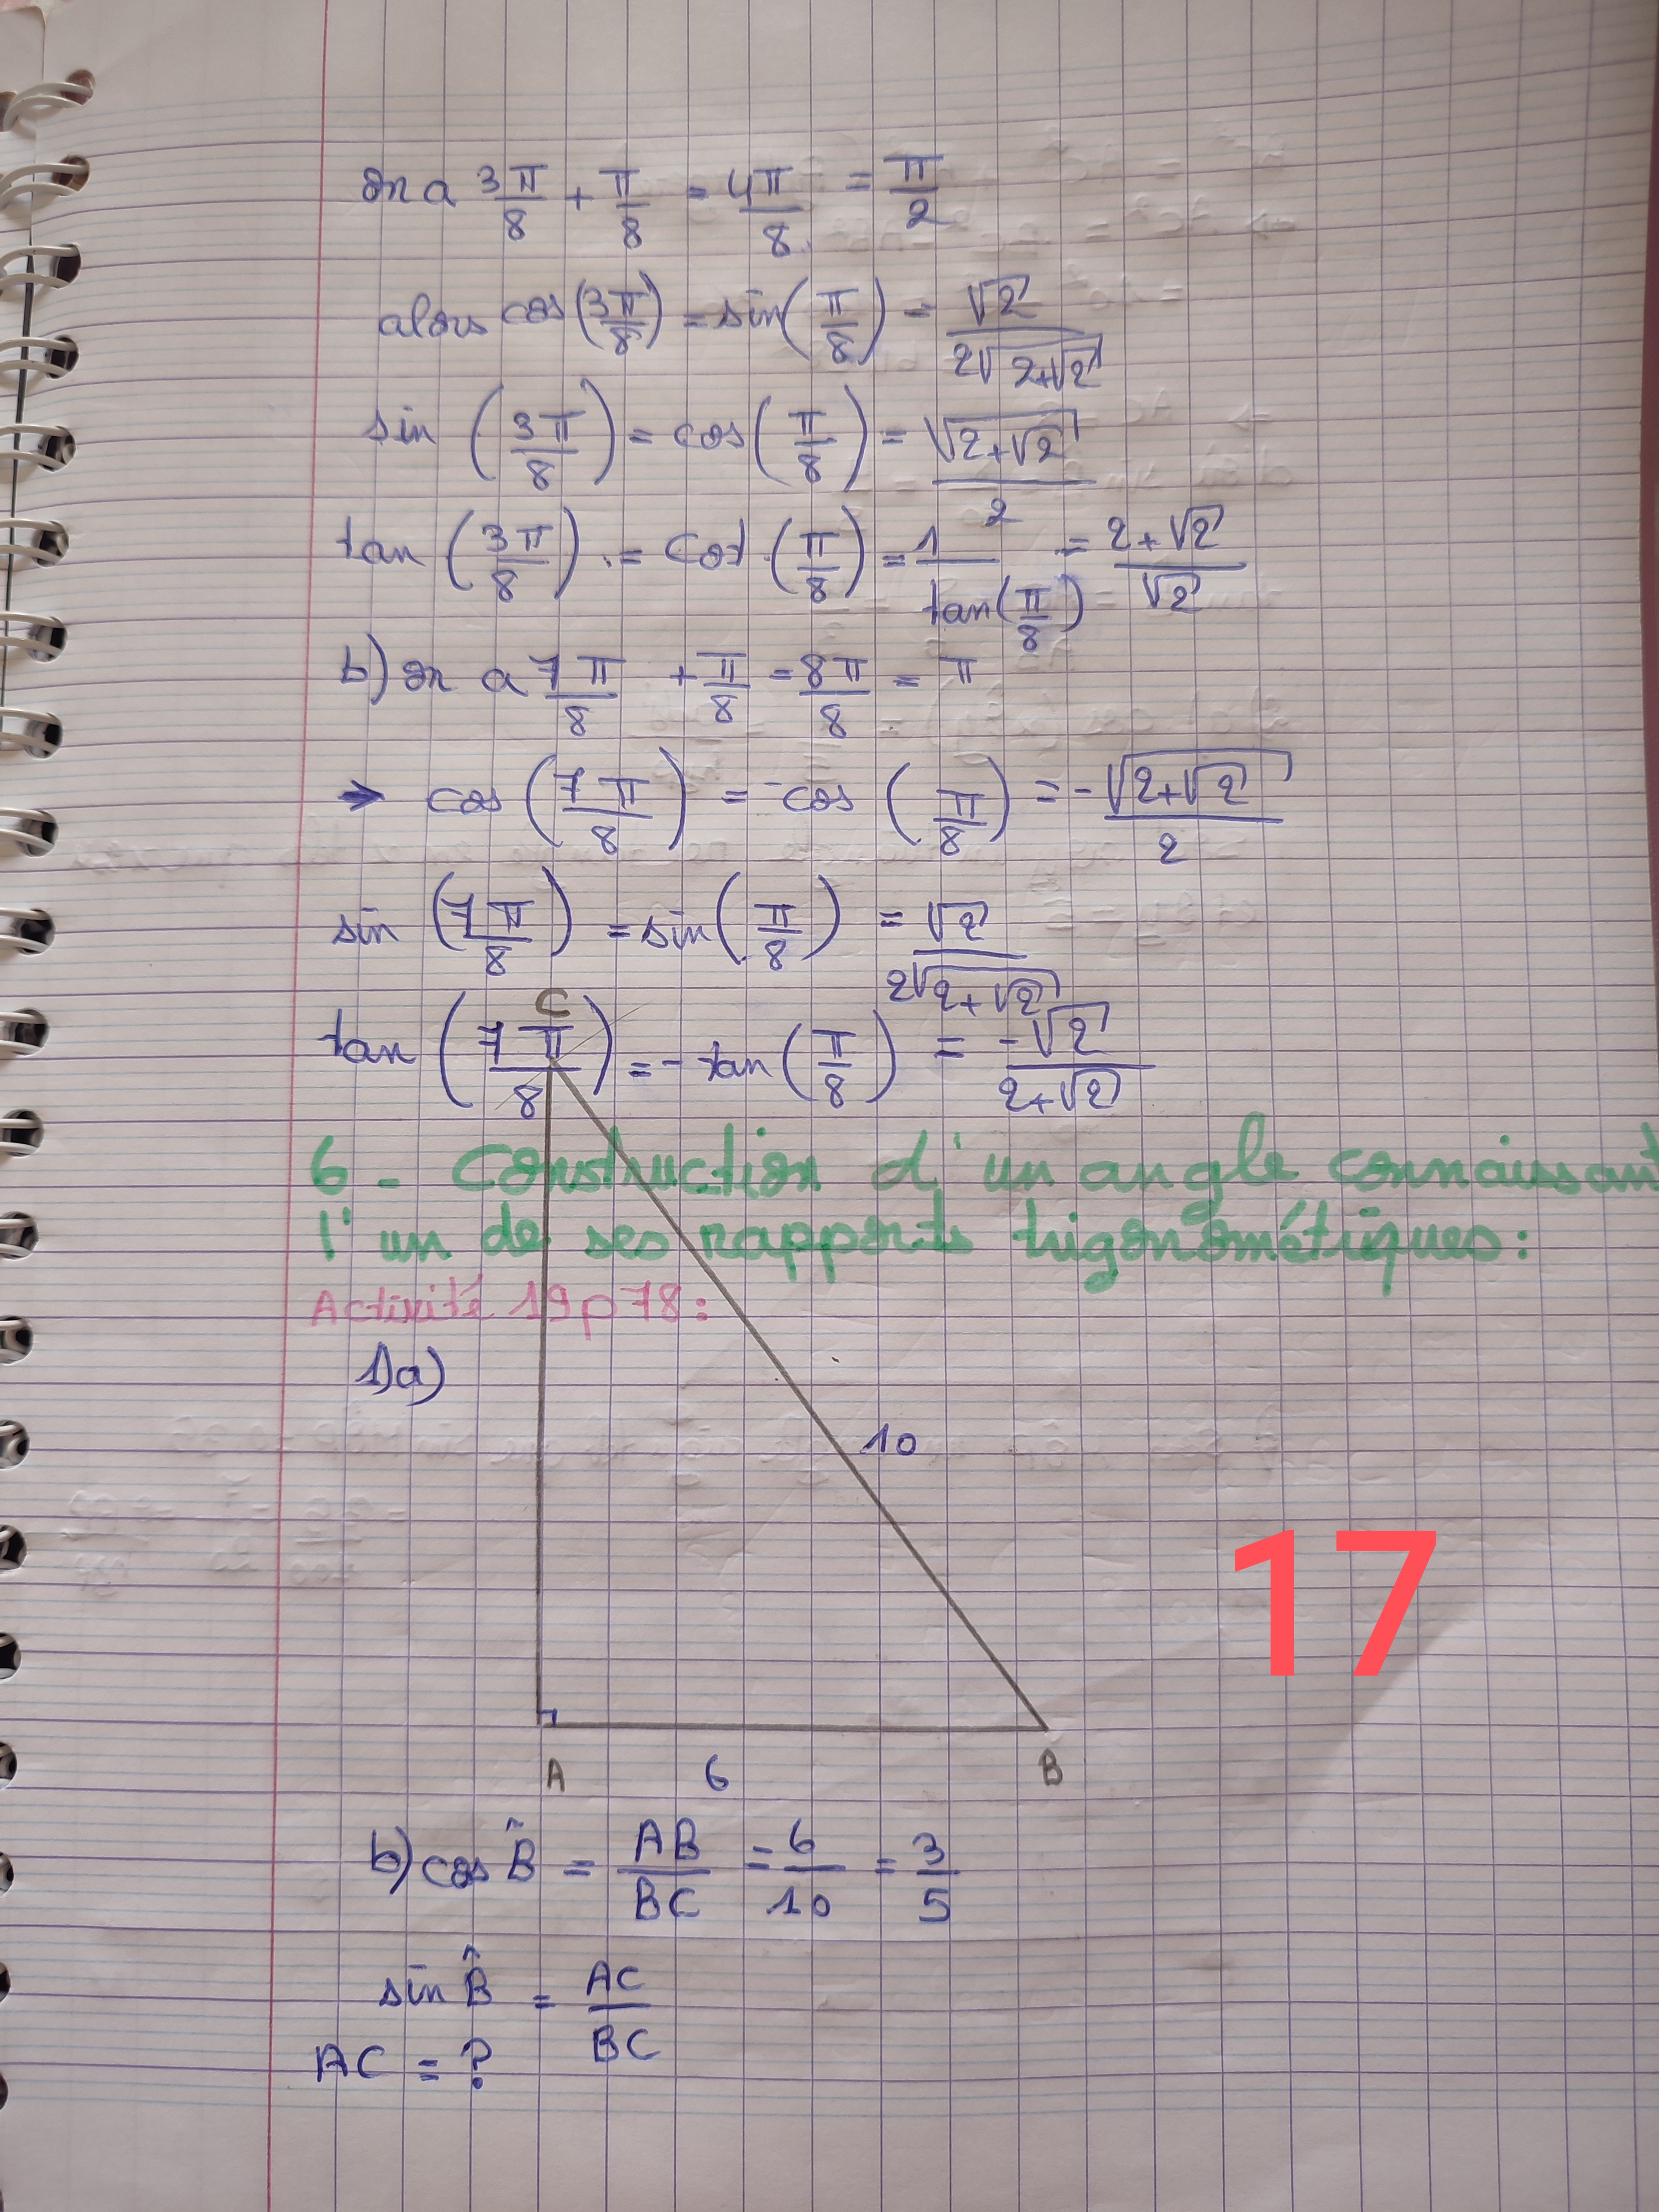 on a 3π/8 + π/8 = 4π/8 = π/2
alors cos(3π/8) = sin(π/8) = √2/(2√(2+√2))
sin(3π/8) = cos(π/8) = √(2+√2)/2
tan(3π/8) = cot(π/8) = 1/tan(π/8) = (2+√2)/√2
b) on a 7π/8 + π/8 = 8π/8 = π
→ cos(7π/8) = -cos(π/8) = -√(2+√2)/2
sin(7π/8) = sin(π/8) = √2/(2√(2+√2))
tan(7π/8) = -tan(π/8) = -√2/(2+√2)
C
6 - Construction d'un angle connaissant
l'un de ses rapports trigonométriques:
Activité 19p78:
1)a)
10
17
A 6 B
b) cos B̂ = AB/BC = 6/10 = 3/5
sin B̂ = AC/BC
AC = ?